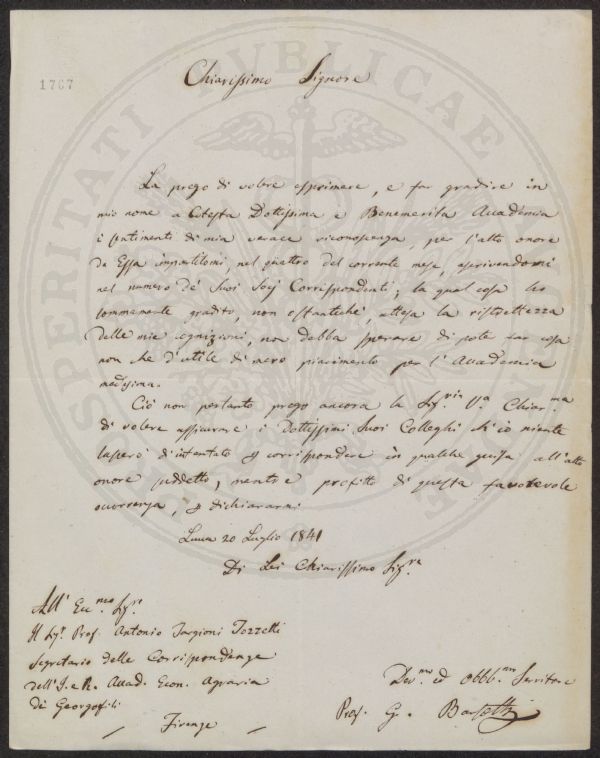 1767
Chiarissimo Signore
La prego di volere esprimere, e far gradire in
mio nome a Cotesta Dottissima e Benemerita Accademia
i sentimenti di mia verace riconoscenza, per l'alto onore
da Essa impartitomi, nel quattro del corrente mese, ascrivendomi
nel numero de' Suoi Socj Corrispondenti; la qual cosa ho
sommamente gradito, non ostantechè, attesa la ristrettezza
delle mie cognizioni, non debba sperare di poter far cosa
non che d'utile di mero piacimento per l'Accademia
medesima.
Ciò non pertanto prego ancora la Sig.ria V.a Chiar.ma
di volere assicurare i Dottissimi Suoi Colleghi ch'io niente
lascerò d'intentato per corrispondere in qualche guisa all'alto
onore suddetto, mentre profitto di questa favorevole
occorrenza, per dichiararmi
Lucca 20 Luglio 1841
Di Lei Chiarissimo Sig.re
All' Ecc.mo Sig.re
Il Sig.r Prof. Antonio Targioni Tozzetti
Segretario delle Corrispondenze
dell'I. e R. Accad. Econ. Agraria
dei Georgofili
Firenze
Dev.mo ed Obbb.mo Servitore
Prof. G.
PROSPERITATI PUBLICAE AUGENDAE